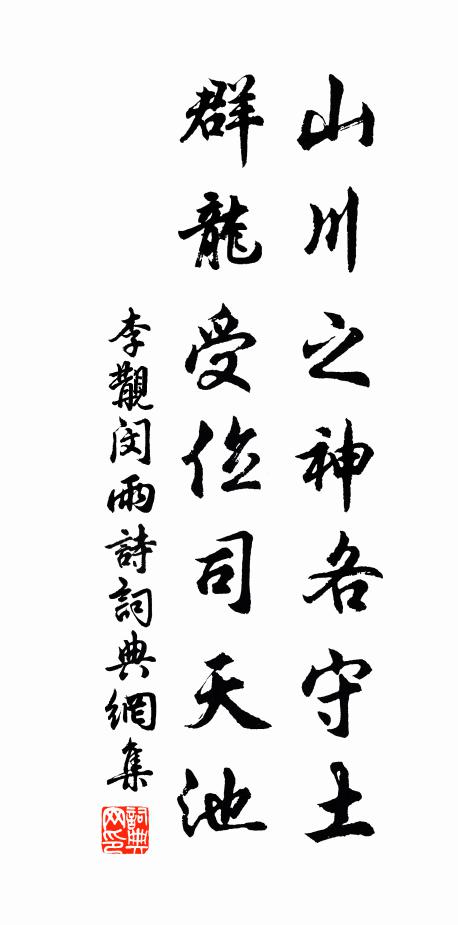 山川之神各守土
群龍受位司天池
李覯閔雨詩詞典網集
詞典网印